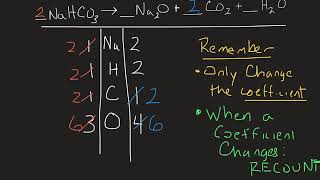 2 NaHCO₃ → _Na₂O + 2 CO₂ + _H₂O
2 1 Na 2
2 1 H 2
2 1 C 1 2
6 3 O 4 6
Remember
• Only Change
the coefficient
• When a
Coefficient
Changes:
RECOUNT